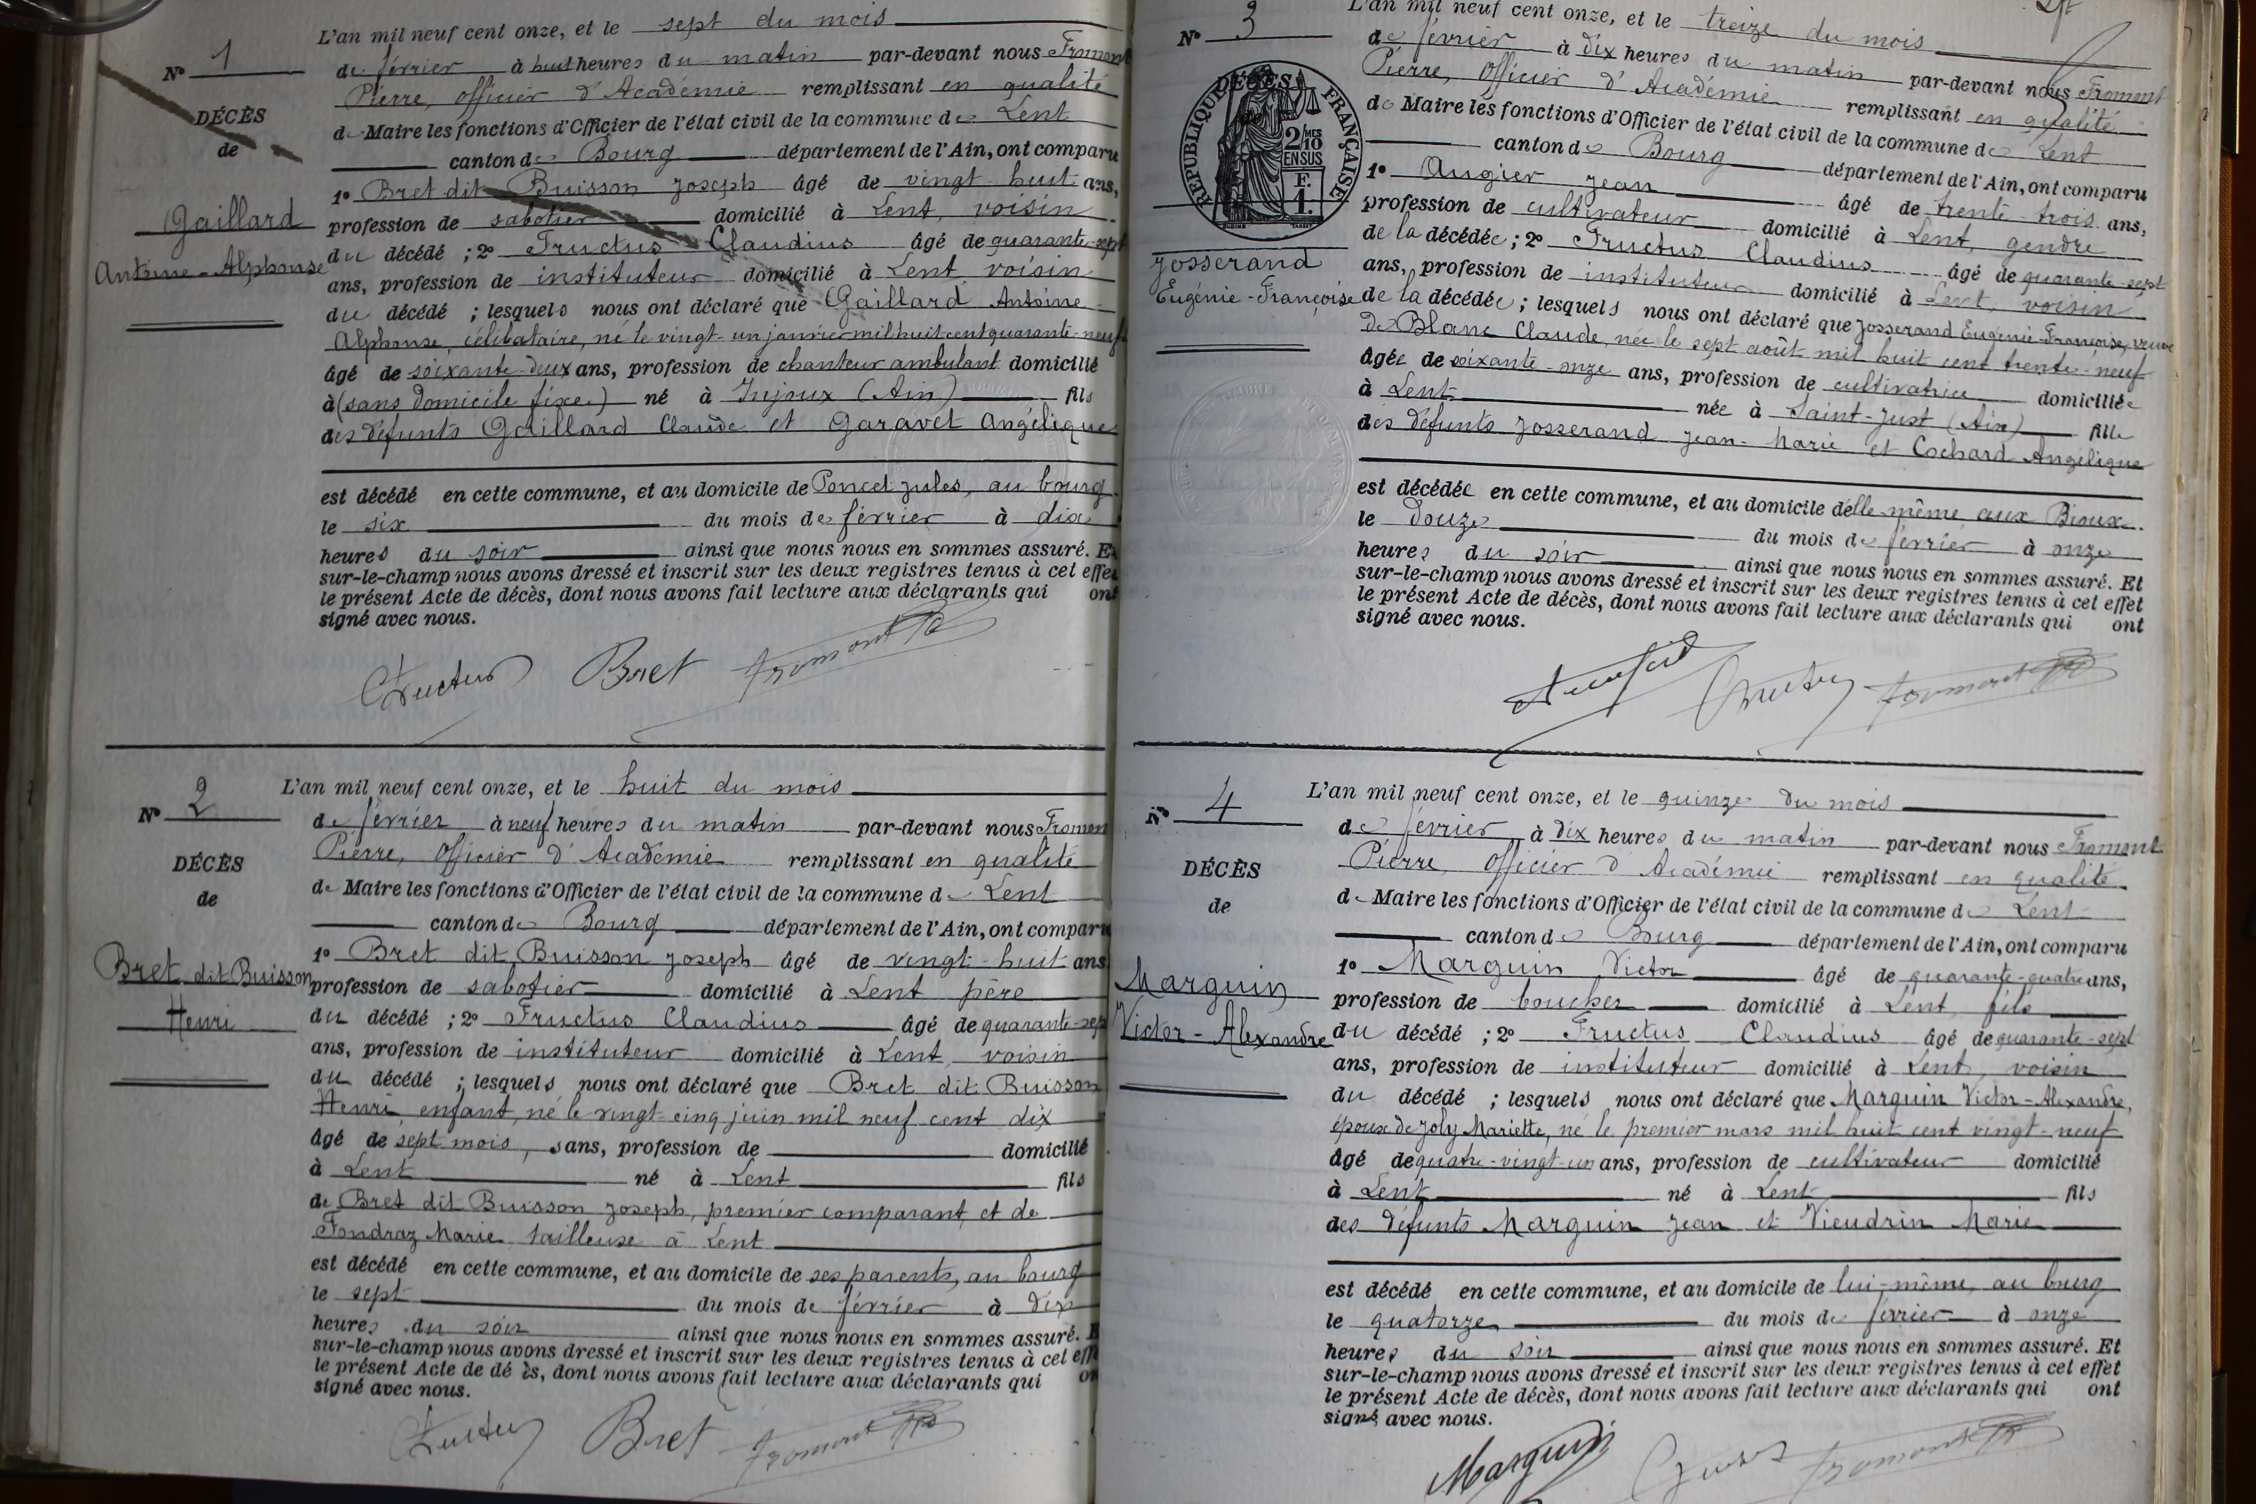 L'an mil neuf cent onze, et le sept du mois
N° 1
de février à huit heures du matin par-devant nous Fromont
Pierre, Officier d'Académie remplissant en qualité
DÉCÈS
de Maire les fonctions d'Officier de l'état civil de la commune de Lent
de
canton de Bourg département de l'Ain, ont comparu
1° Bret dit Buisson Joseph âgé de vingt-huit ans,
Gaillard
profession de sabotier domicilié à Lent, voisin
Antoine-Alphonse
du décédé ; 2° Fructus Claudius âgé de quarante-sept
ans, profession de instituteur domicilié à Lent voisin
du décédé ; lesquels nous ont déclaré que Gaillard Antoine
Alphonse, célibataire, né le vingt-un janvier mil huit cent quarante-neuf
âgé de soixante-deux ans, profession de chanteur ambulant domicilié
à (sans domicile fixe) né à Injoux (Ain) fils
des défunts Gaillard Claude et Garavet Angélique
est décédé en cette commune, et au domicile de Poncet Jules, au bourg
le six du mois de février à dix
heures du soir ainsi que nous nous en sommes assuré. Et
sur-le-champ nous avons dressé et inscrit sur les deux registres tenus à cet effet
le présent Acte de décès, dont nous avons fait lecture aux déclarants qui ont
signé avec nous.
Fructus Bret Fromont
L'an mil neuf cent onze, et le huit du mois
N° 2
de février à neuf heures du matin par-devant nous Fromont
Pierre, Officier d'Académie remplissant en qualité
DÉCÈS
de Maire les fonctions d'Officier de l'état civil de la commune de Lent
de
canton de Bourg département de l'Ain, ont comparu
1° Bret dit Buisson Joseph âgé de vingt-huit ans
Bret dit Buisson
profession de sabotier domicilié à Lent père
Henri
du décédé ; 2° Fructus Claudius âgé de quarante-sept
ans, profession de instituteur domicilié à Lent, voisin
du décédé ; lesquels nous ont déclaré que Bret dit Buisson
Henri enfant, né le vingt-cinq juin mil neuf cent dix
âgé de sept mois, sans, profession de domicilié
à Lent né à Lent fils
de Bret dit Buisson Joseph, premier comparant et de
Fondraz Marie tailleuse à Lent
est décédé en cette commune, et au domicile de ses parents, au bourg
le sept du mois de février à dix
heures du soir ainsi que nous nous en sommes assuré. E
sur-le-champ nous avons dressé et inscrit sur les deux registres tenus à cet effe
le présent Acte de dé ès, dont nous avons fait lecture aux déclarants qui on
signé avec nous.
Fructus Bret Fromont
L'an mil neuf cent onze, et le treize du mois
N° 3
de février à dix heures du matin par-devant nous Fromont
Pierre, Officier d'Académie remplissant en qualité
DÉCÈS
de
RÉPUBLIQUE FRANÇAISE
2/10 MES
EN SUS
F.
1.
de Maire les fonctions d'Officier de l'état civil de la commune de Lent
canton de Bourg département de l'Ain, ont comparu
1° Augier Jean âgé de trente-trois ans,
profession de cultivateur domicilié à Lent, gendre
Josserand
Eugénie-Françoise
de la décédée ; 2° Fructus Claudius âgé de quarante-sept
ans, profession de instituteur domicilié à Lent, voisin
de la décédée ; lesquels nous ont déclaré que Josserand Eugénie-Françoise, veuve
de Blanc Claude, née le sept août mil huit cent trente-neuf
âgée de soixante-onze ans, profession de cultivatrice domiciliée
à Lent née à Saint-Just (Ain) fille
des défunts Josserand Jean-Marie et Cochard Angélique
est décédée en cette commune, et au domicile d'elle-même aux Bioux.
le douze du mois de février à onze
heures du soir ainsi que nous nous en sommes assuré. Et
sur-le-champ nous avons dressé et inscrit sur les deux registres tenus à cet effet
le présent Acte de décès, dont nous avons fait lecture aux déclarants qui ont
signé avec nous.
Fructus Fromont
L'an mil neuf cent onze, et le quinze du mois
N° 4
de février à dix heures du matin par-devant nous Fromont
Pierre, Officier d'Académie remplissant en qualité
DÉCÈS
de Maire les fonctions d'Officier de l'état civil de la commune de Lent
de
canton de Bourg département de l'Ain, ont comparu
1° Marguin Victor âgé de quarante-quatre ans,
Marguin
profession de boucher domicilié à Lent, fils
Victor-Alexandre
du décédé ; 2° Fructus Claudius âgé de quarante-sept
ans, profession de instituteur domicilié à Lent, voisin
du décédé ; lesquels nous ont déclaré que Marguin Victor-Alexandre,
époux de Joly Mariette, né le premier mars mil huit cent vingt-neuf
âgé de quatre-vingt-un ans, profession de cultivateur domicilié
à Lent né à Lent fils
des défunts Marguin Jean et Vieudrin Marie
est décédé en cette commune, et au domicile de lui-même, au bourg
le quatorze du mois de février à onze
heures du soir ainsi que nous nous en sommes assuré. Et
sur-le-champ nous avons dressé et inscrit sur les deux registres tenus à cet effet
le présent Acte de décès, dont nous avons fait lecture aux déclarants qui ont
signé avec nous.
Marguin Fructus Fromont